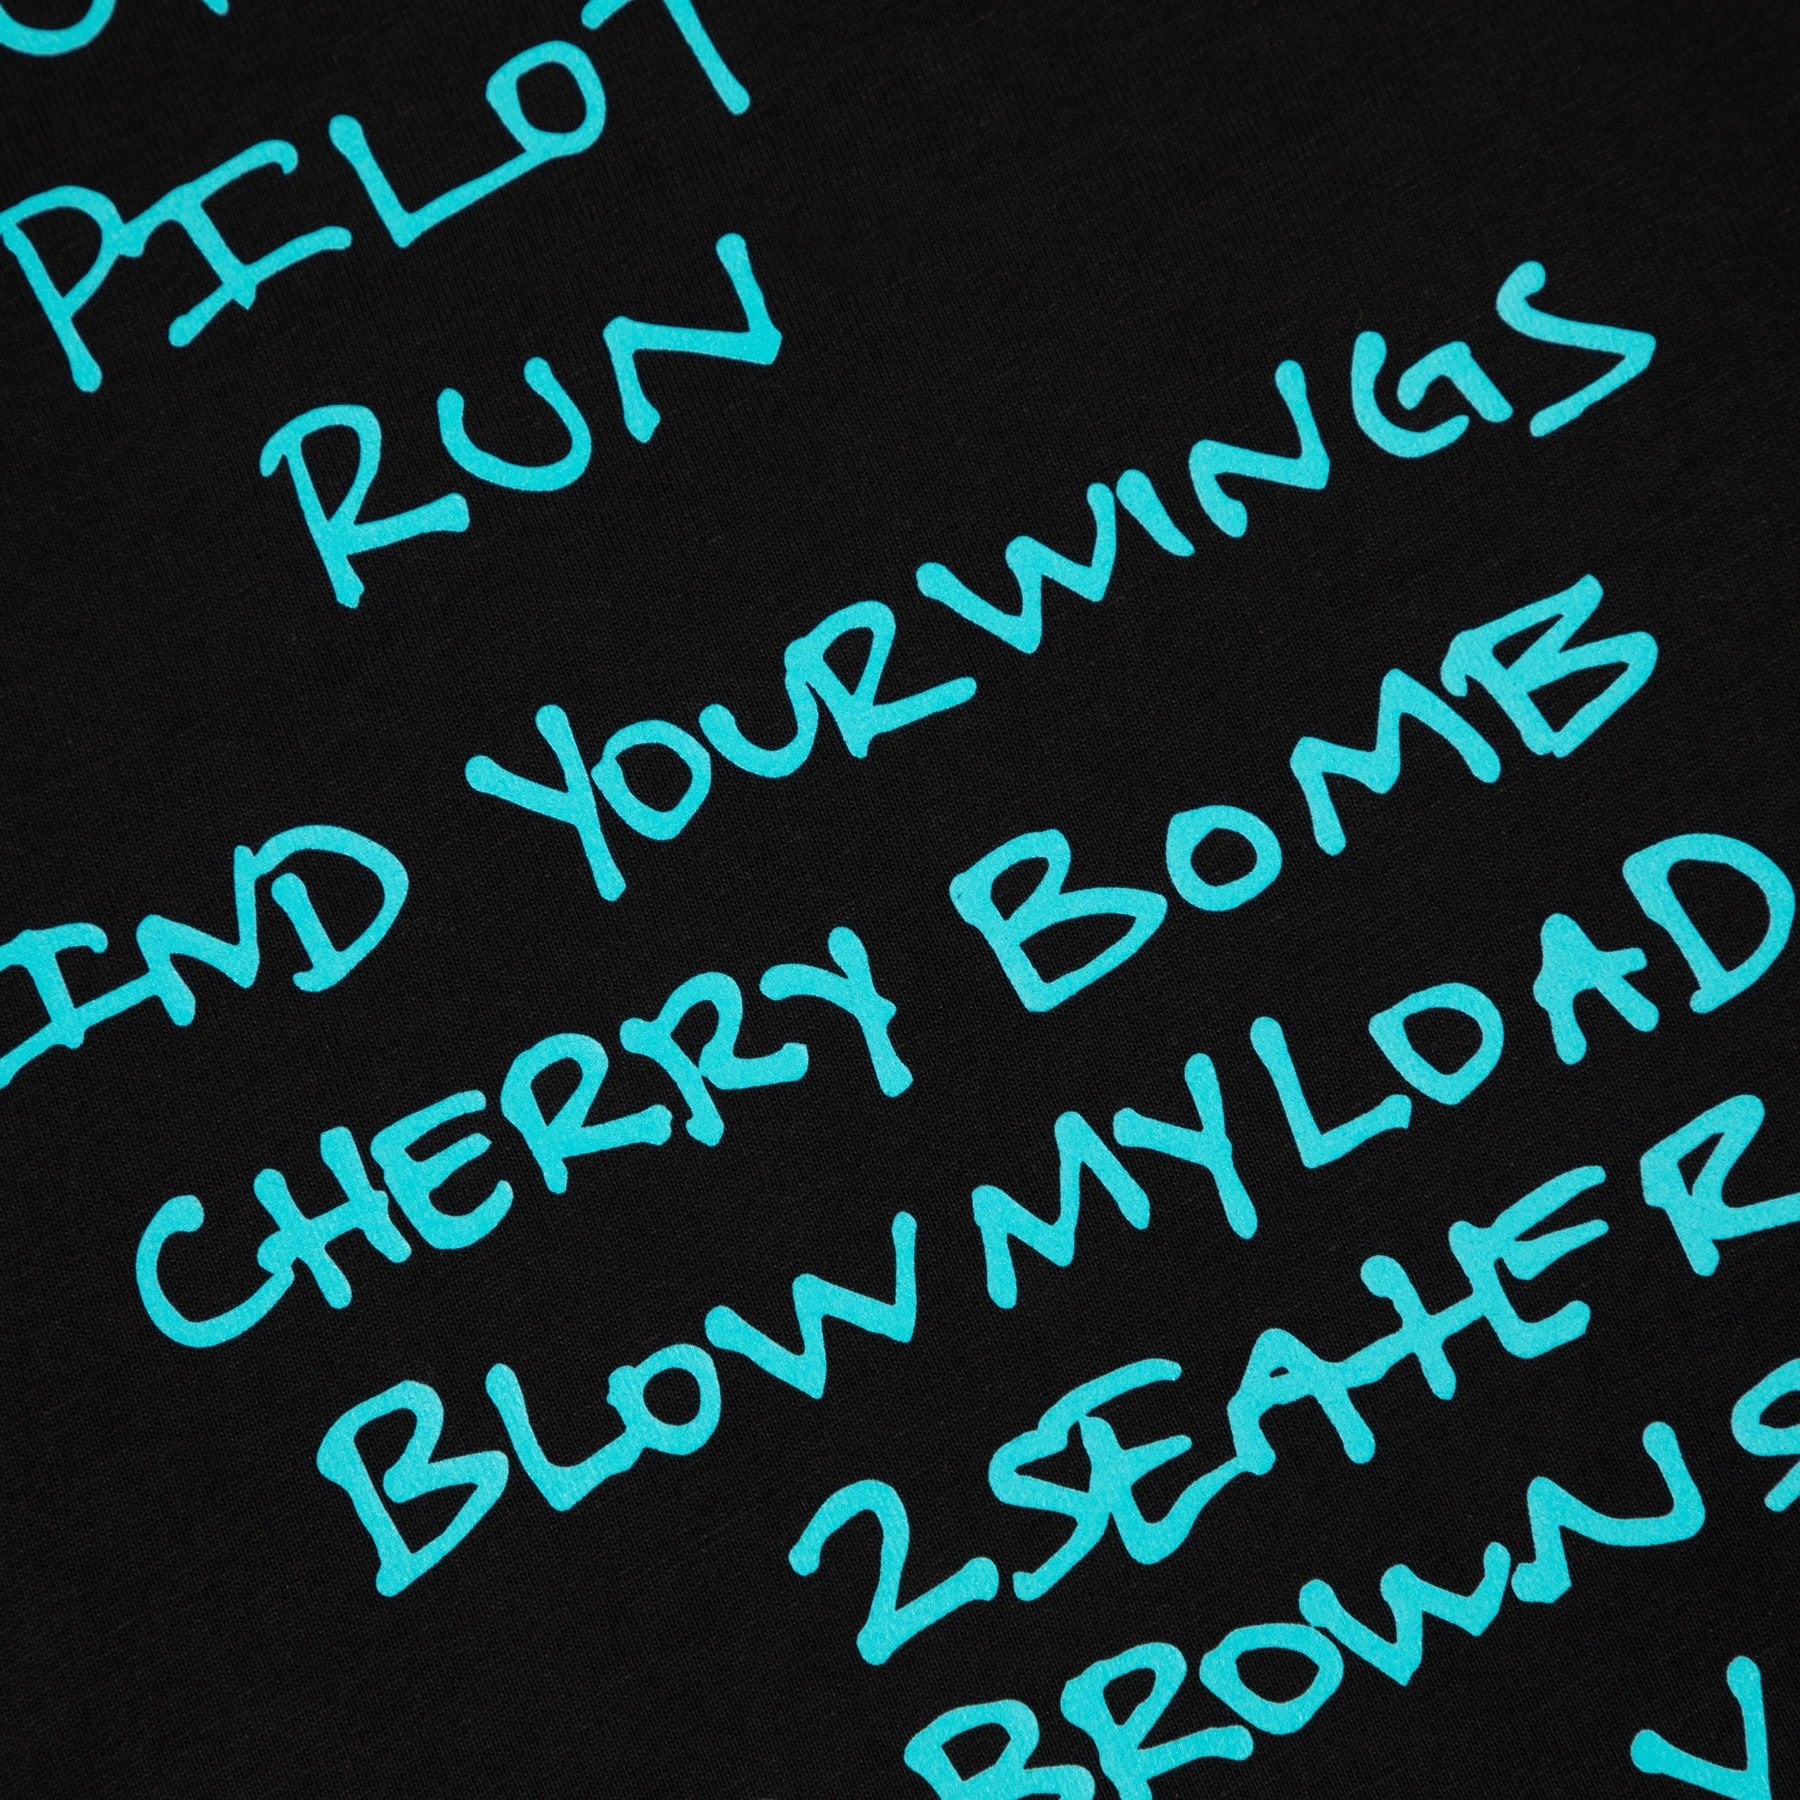 PILOT
RUN
IND YOUR WINGS
CHERRY BOMB
BLOW MY LOAD
2SEATER
BROWN S